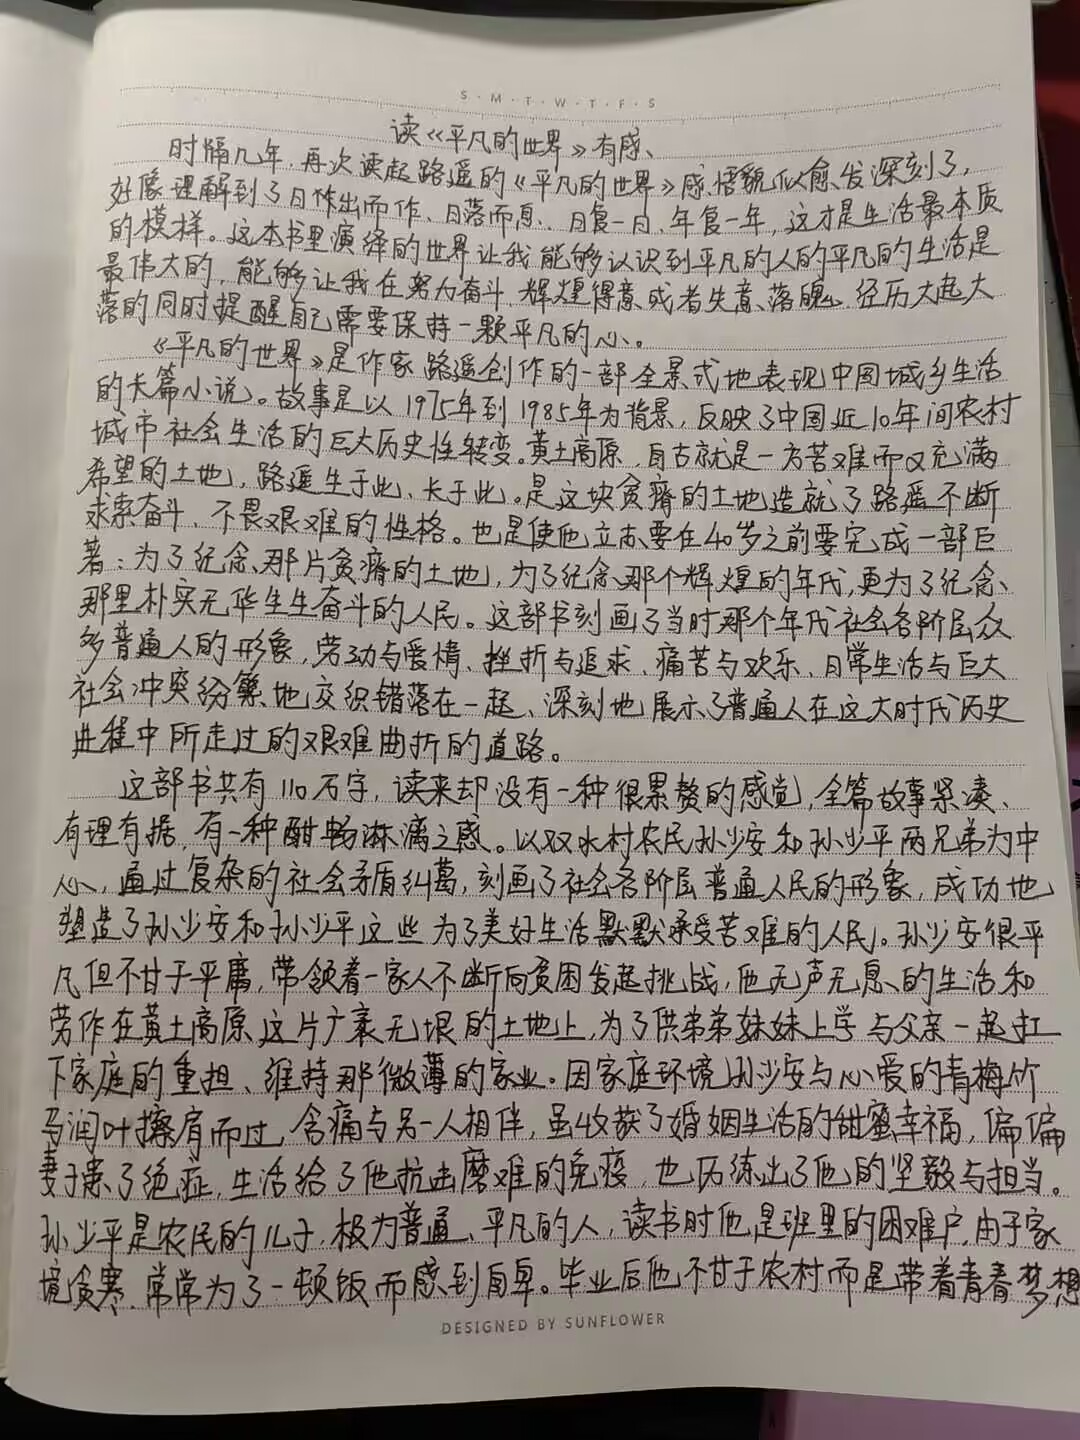 S·M·T·W·T·F·S
读《平凡的世界》有感、
时隔几年,再次读起路遥的《平凡的世界》感悟貌似愈发深刻了,
好像理解到了日作出而作、日落而息、日复一日、年复一年,这才是生活最本质
的模样。这本书里演绎的世界让我能够认识到平凡的人的平凡的生活是
最伟大的,能够让我在努力奋斗、辉煌得意或者失意、落魄、经历大起大
落的同时提醒自己需要保持一颗平凡的心。
《平凡的世界》是作家路遥创作的一部全景式地表现中国城乡生活
的长篇小说。故事是以1975年到1985年为背景,反映了中国近10年间农村
城市社会生活的巨大历史性转变。黄土高原,自古就是一方苦难而又充满
希望的土地,路遥生于此、长于此。是这块贫瘠的土地造就了路遥不断
求索奋斗、不畏艰难的性格。也是使他立志要在40岁之前要完成一部巨
著:为了纪念那片贫瘠的土地,为了纪念那个辉煌的年代,更为了纪念、
那里朴实无华生生奋斗的人民。这部书刻画了当时那个年代社会各阶层众
多普通人的形象,劳动与爱情、挫折与追求、痛苦与欢乐、日常生活与巨大
社会冲突纷繁地交织错落在一起、深刻地展示了普通人在这大时代历史
进程中所走过的艰难曲折的道路。
这部书共有110万字,读来却没有一种很累赘的感觉,全篇故事紧凑、
有理有据,有一种酣畅淋漓之感。以双水村农民孙少安和孙少平两兄弟为中
心,通过复杂的社会矛盾纠葛,刻画了社会各阶层普通人民的形象,成功地
塑造了孙少安和孙少平这些为了美好生活默默承受苦难的人民。孙少安很平
凡但不甘于平庸,带领着一家人不断向贫困发起挑战,他无声无息的生活和
劳作在黄土高原这片广袤无垠的土地上,为了供弟弟妹妹上学与父亲一起扛
下家庭的重担、维持那微薄的家业。因家庭环境孙少安与心爱的青梅竹
马润叶擦肩而过,含痛与另一人相伴,虽收获了婚姻生活的甜蜜幸福,偏偏
妻子患了绝症,生活给了他抗击磨难的免疫,也历练出了他的坚毅与担当。
孙少平是农民的儿子,极为普通、平凡的人,读书时他是班里的困难户,由于家
境贫寒,常常为了一顿饭而感到自卑。毕业后他不甘于农村而是带着青春梦想
DESIGNED BY SUNFLOWER